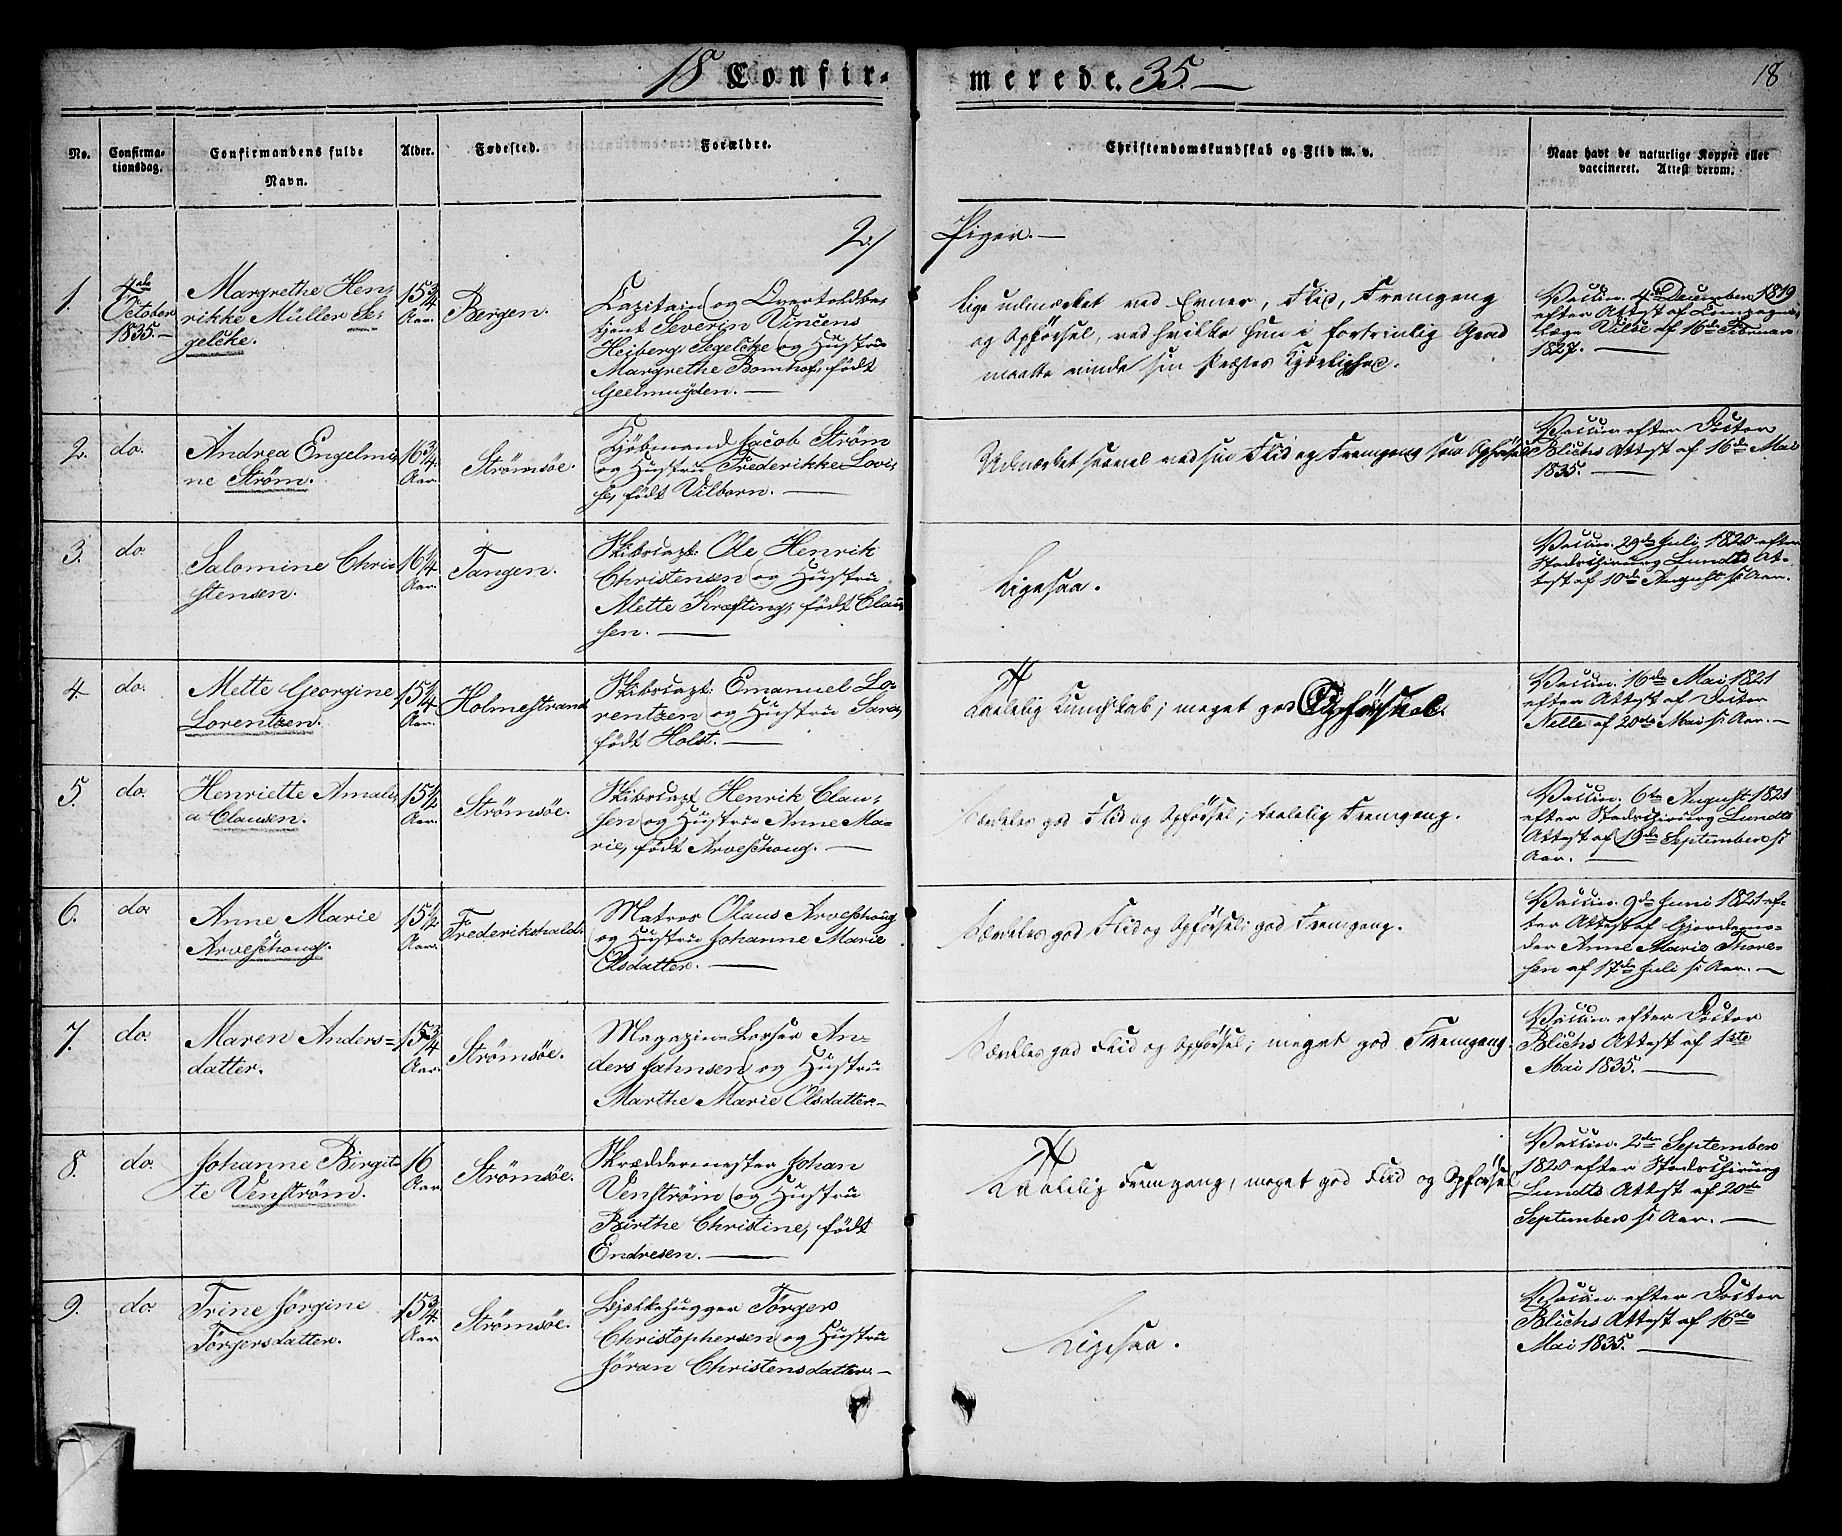 18 Confirmerede. 35. —
18
No.
Confirmationsdag.
Confirmandens fulde Navn.
Alder.
Fødested.
Forældre.
Christendomskundskab og Flid m. v.
Naar havt de naturlige Kopper eller
vaccineret. Attest derom.
2/ Piger. —
1.
4de
October
1835. —
Margrethe Hen-
rikke Müller Se-
gelcke.
15 3/4
Aar.
Bergen.
Capitain og Overtoldbe-
tjent Severin Vincens
Heiberg Segelcke og Hustru
Margrethe Bomhof, født
Geelmuyden. —
Lige udmærket ved Evner, Flid, Fremgang
og Opførsel, ved hvilke hun i fortrinlig Grad
maatte vinde sin Kjærlighed.
Vaccin. 4de December 1819
efter Attest af Compagnie-
læge Vilse af 16de Februar
1827. —
2.
do.
Andrea Engelmi-
ne Strøm.
16 3/4
Aar.
Strømsøe.
Kjøbmand Jacob Strøm
og Hustru Frederikke Lovi-
se, født Vilborn. —
Udmærket saavel ved sin Flid og Fremgang som Opførsel
Vaccin. efter Doctor
Blichs Attest af 16de Mai
1835. —
3.
do.
Salomine Chri-
stensen.
16 1/4
Aar.
Tangen.
Skibscapt: Ole Henrik
Christensen og Hustru
Mette Kræfting, født Clau-
sen. —
Ligesaa.
Vaccin. 29de Juli 1820 efter
Stadschirurg Lundts At-
test af 10de August s. Aar.
4.
do.
Mette Georgine
Lorentzen.
15 1/4
Aar.
Holmestrand
Skibscapt: Emanuel Lo-
rentzen og Hustru Sara,
født Holst. —
Taalelig Kundskab; meget god Opførsel.
Vaccin. 16de Mai 1821
efter Attest af Doctor
Nelle af 20de Mai s. Aar. —
5.
do.
Henriette Amali-
a Clausen.
15 1/2
Aar.
Strømsøe.
Skibscapt Henrik Clau-
sen og Hustru Anne Ma-
rie, født Arveschoug. —
Særdeles god Flid og Opførsel; taalelig Fremgang.
Vaccin. 6te August 1821
efter Stadschirurg Lundts
Attest af 19de September s.
Aar. —
6.
do.
Anne Marie
Arveschoug.
15 1/2
Aar.
Frederikshald.
Matros Olaus Arveschoug
og Hustru Johanne Marie
Olsdatter. —
Særdeles god Flid og Opførsel; god Fremgang.
Vaccin. 9de Juni 1821 ef-
ter Attest af Gjordemo-
der Anne Marie Thore-
sen af 17de Juli s. Aar. —
7.
do.
Maren Anders-
datter.
15 3/4
Aar.
Strømsøe.
Magazin-Losser An-
ders Johnsen og Hustru
Marthe Marie Olsdatter. —
Særdeles god Flid og Opførsel; meget god Fremgang.
Vaccin. efter Doctor
Blichs Attest af 1ste
Mai 1835. —
8.
do.
Johanne Birgit-
te Venstrøm.
16
Aar.
Strømsøe.
Skræddermester Johan
Venstrøm og Hustru
Birthe Christine, født
Endresen. —
Taalelig Fremgang, meget god Flid og Opførsel
Vaccin. 2den September
1820 efter Stadschirurg
Lundts Attest af 20de
September s. Aar. —
9.
do
Trine Jørgine
Tørgersdatter.
15 3/4
Aar
Strømsøe.
Bjelkehugger Tørger
Christophersen og Hustru
Jøran Christensdatter. —
Ligesaa.
Vaccin. efter Doctor
Blichs Attest af 16de
Mai 1835. —